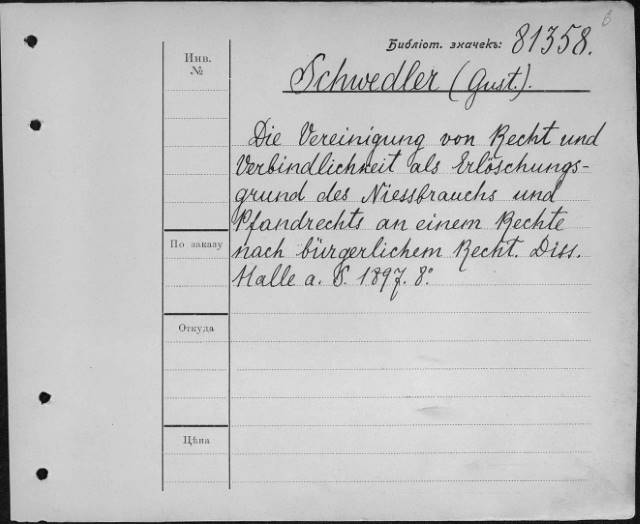 6
Библіот. значекъ: 81358.
Инв.
№
Schwedler (Gust.).
Die Vereinigung von Recht und
Verbindlichkeit als Erlöschungs-
grund des Niessbrauchs und
Pfandrechts an einem Rechte
nach bürgerlichem Recht. Diss.
Halle a. S. 1897. 8.°
По заказу
Откуда
Цѣна